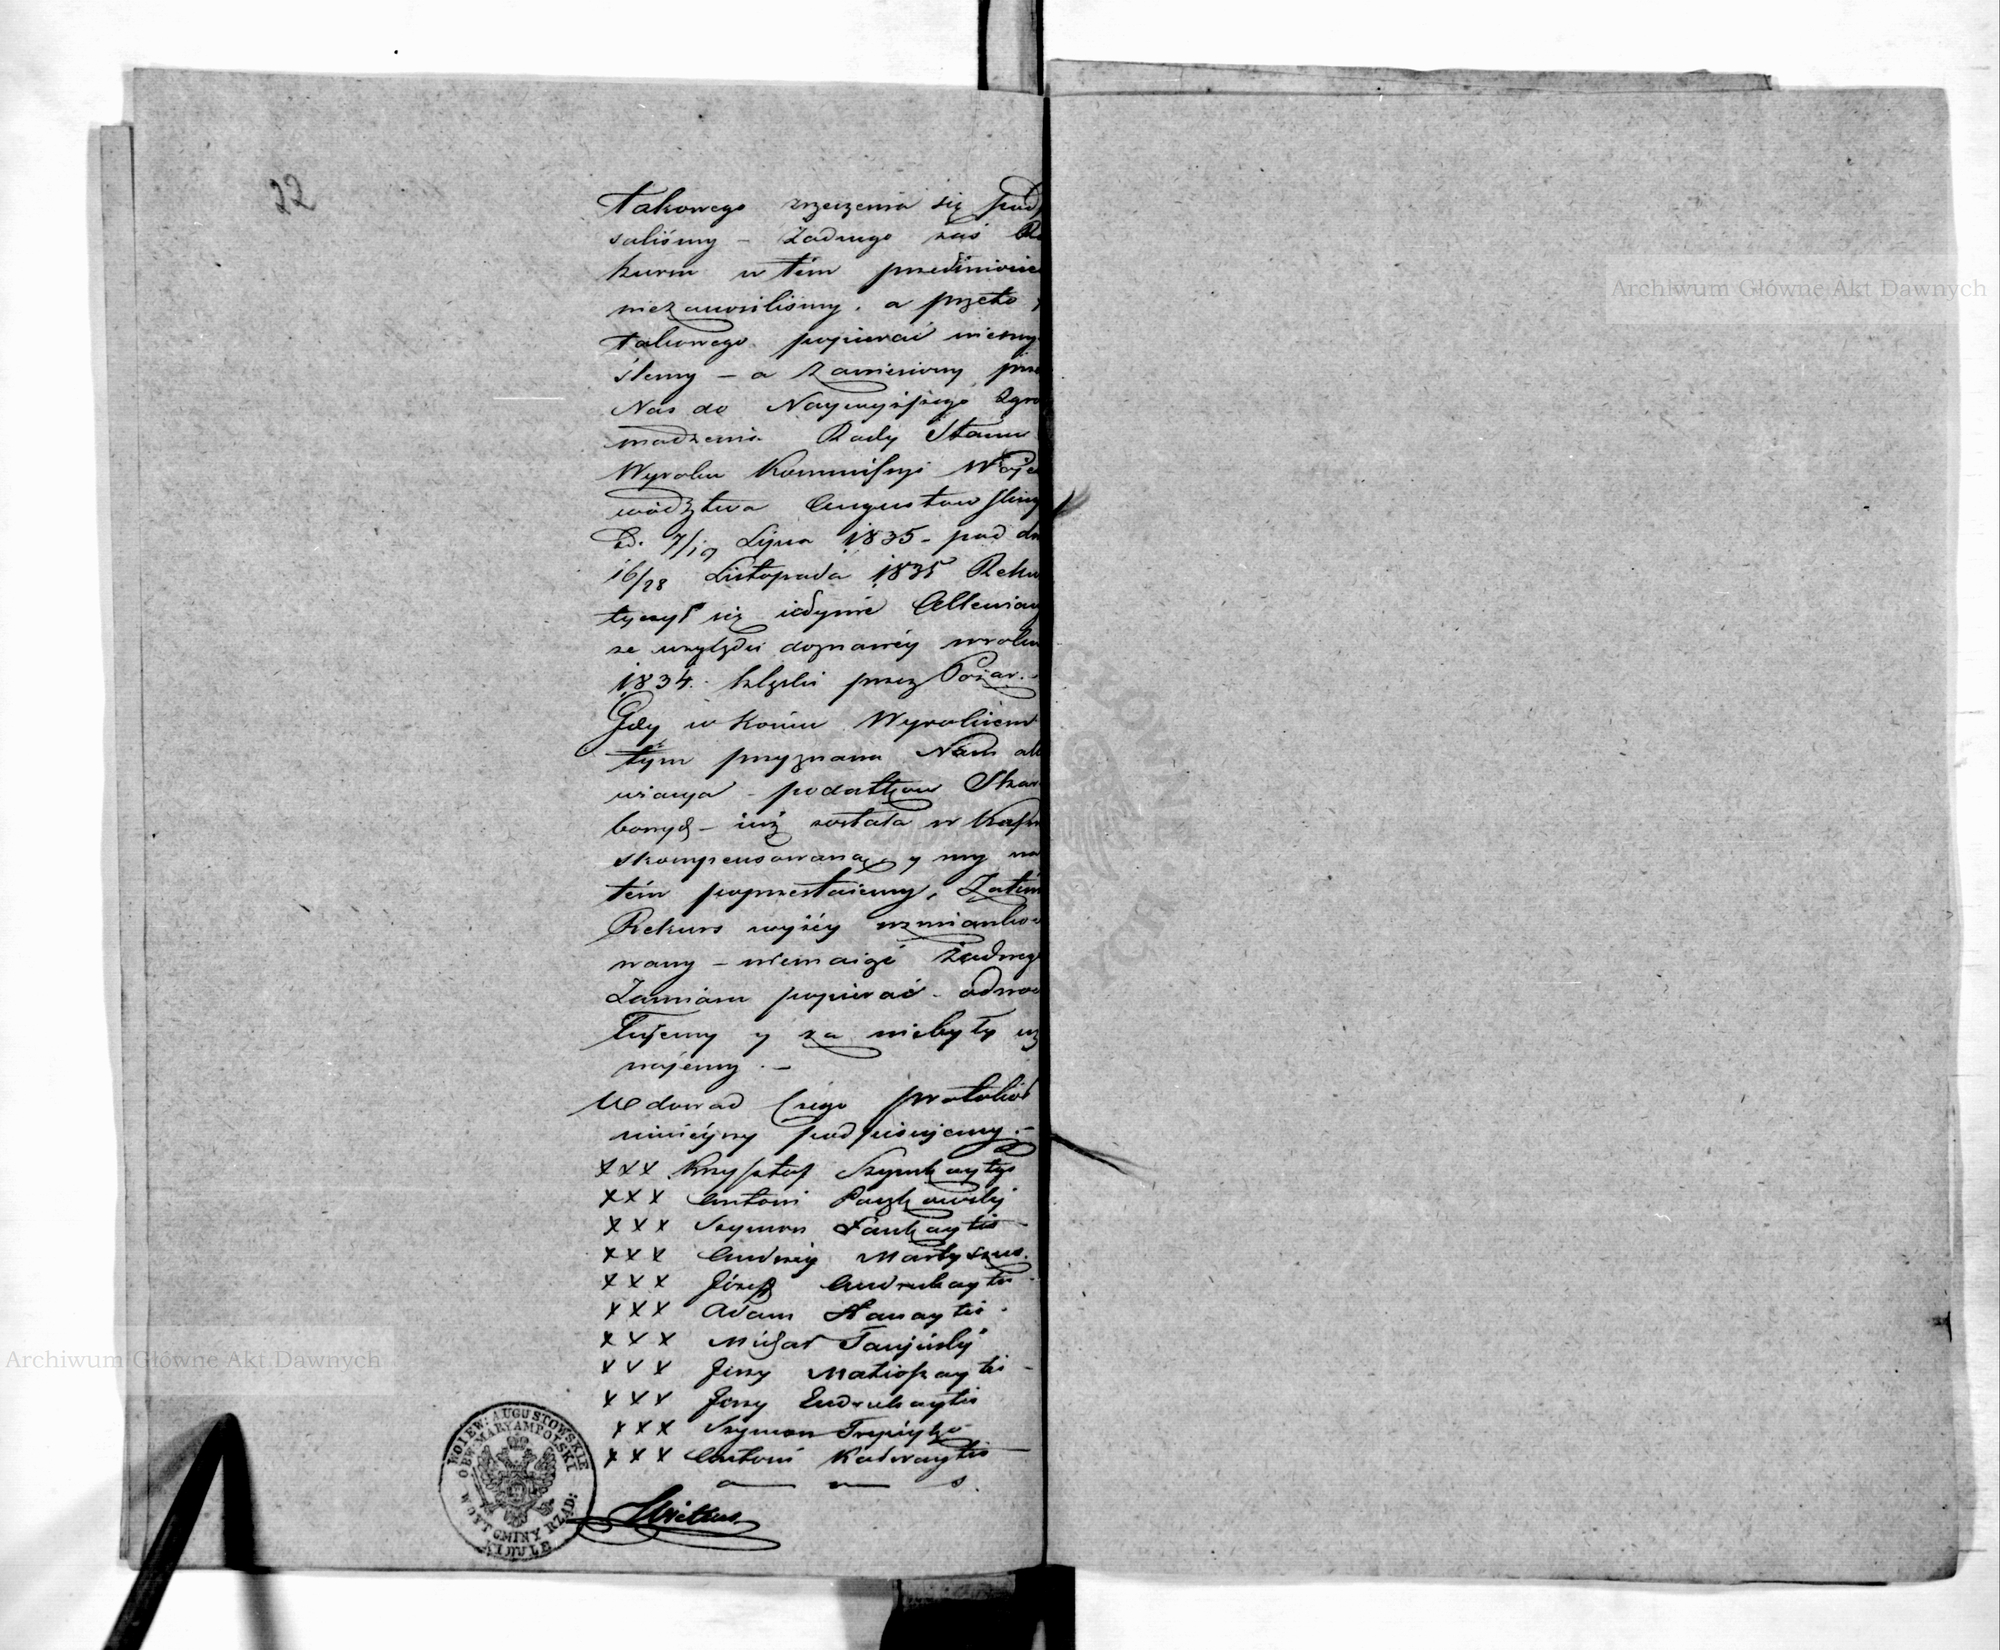 22
takowego zrzeczenia się pod
saliśmy – Żadnego zaś Re
kursu w tém przedmiocie
niezanosiliśmy, a przeto
takowego popierać niemy
ślemy – a zaniesiony prze
Nas do Naywyższego Zgro
madzenia Rady Stanu
Wyroku Kommissyi Woje
wództwa Augustowskieg
D. 7/19 Lipca 1835 – pod dn
16/28 Listopada 1835 Reku
tyczył się iedynie Allewiacy
ze względu doznanéy w roku
1834. klęski przez Pożar.
Gdy w końcu Wyrokiem
tym przyznana Nam all
wiacya podatków Skar
bowych – iuż została w Kassi
skompensowaną, y my na
tém poprzestaiemy, Zatém
Rekurs wyżéy wzmianko
wany – niemaiąc żadneg
Zamiaru popierać – odwo
łujemy y za niebyły uz
najemy. –
Na dowód czego protokół
ninieyszy podpisujemy. –
XXX Krzysztof Szymkaytys
XXX Antoni Paszkowsky
XXX Szymon Jankaytis
XXX Andrzéy Martyszus.
XXX Józef Andrukaytis
XXX Adam Hanaytis.
XXX Michał
XXX Jerzy Matioszaytis
XXX Jerzy Endrukaytis
XXX Szymon
XXX Antoni
Witkus
WOIEW: AUGUSTOWSKIE
OBW: MARYAMPOLSKI
WOYT GMINY RZĄD:
KIDULE
Archiwum Główne Akt Dawnych
Archiwum Główne Akt Dawnych